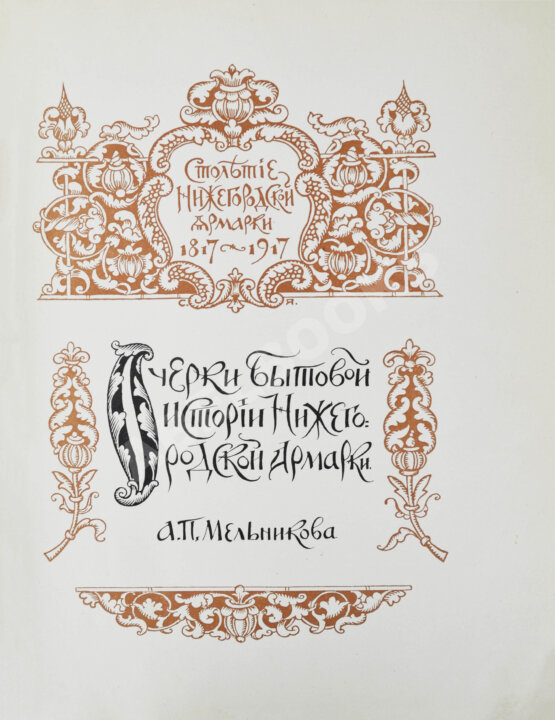 Столѣтіе
Нижегородской
ярмарки
1817 ~ 1917
Я.
Очерки бытовой
исторіи Нижего-
родской Ярмарки.
А.П. Мельникова